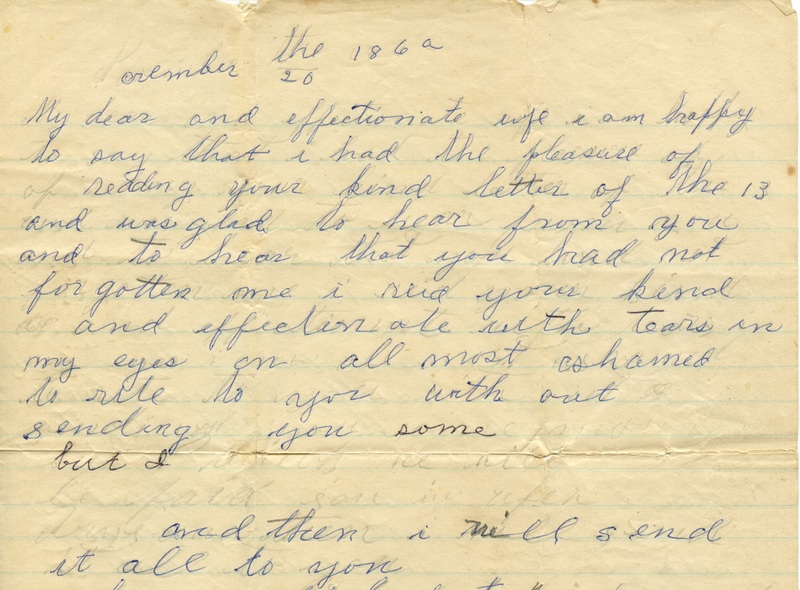 November the 20 186
My dear and effectionate wife i am happy
to say that i had the pleasure of
of reading your kind letter of the 13
and was glad to hear from you
and to hear that you had not
forgotten me i rid your kind
and effectionate with tears in
my eyes on all most ashamed
to rite to you with out
sending you some
but I
and then i will send
it all to you